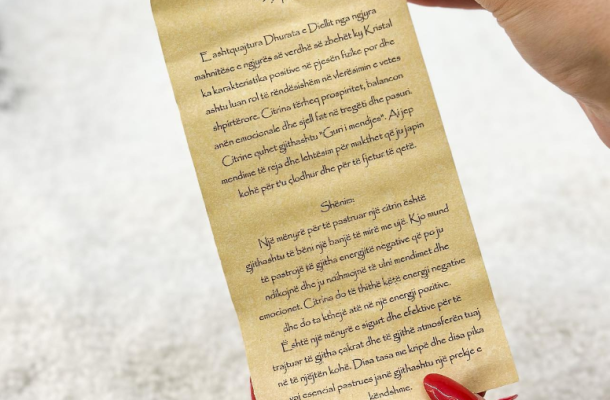 E ashtquajtura Dhurata e Diellit nga ngjyra
mahnitëse e ngjyrës së verdhë së zbehët ky Kristal
ka karakteristika positive në pjesën fizike por dhe
ashtu luan rol të rëndësishëm në vlerësimin e vetes
shpirtërore. Citrina tërheq prospiritet, balancon
anën emocionale dhe sjell fat në tregëti dhe pasuri.
Citrine quhet gjithashtu "Guri i mendjes". Ai jep
mendime të reja dhe lehtësim për makthet që ju japin
kohë për t'u çlodhur dhe për të fjetur të qetë.
Shënim:
Një mënyrë për të pastruar një citrin është
gjithashtu të bëni një banjë të mirë me ujë. Kjo mund
të pastrojë të gjitha energjitë negative që po ju
ndikojnë dhe ju ndihmojnë të ulni mendimet dhe
emocionet. Citrina do të thithë këtë energji negative
dhe do ta kthejë atë në një energji pozitive.
Është një mënyrë e sigurt dhe efektive për të
trajtuar të gjitha çakrat dhe të gjithë atmosferën tuaj
në të njëjtën kohë. Disa tasa me kripë dhe disa pika
vaj esencial pastrues janë gjithashtu një prekje e
këndshme.